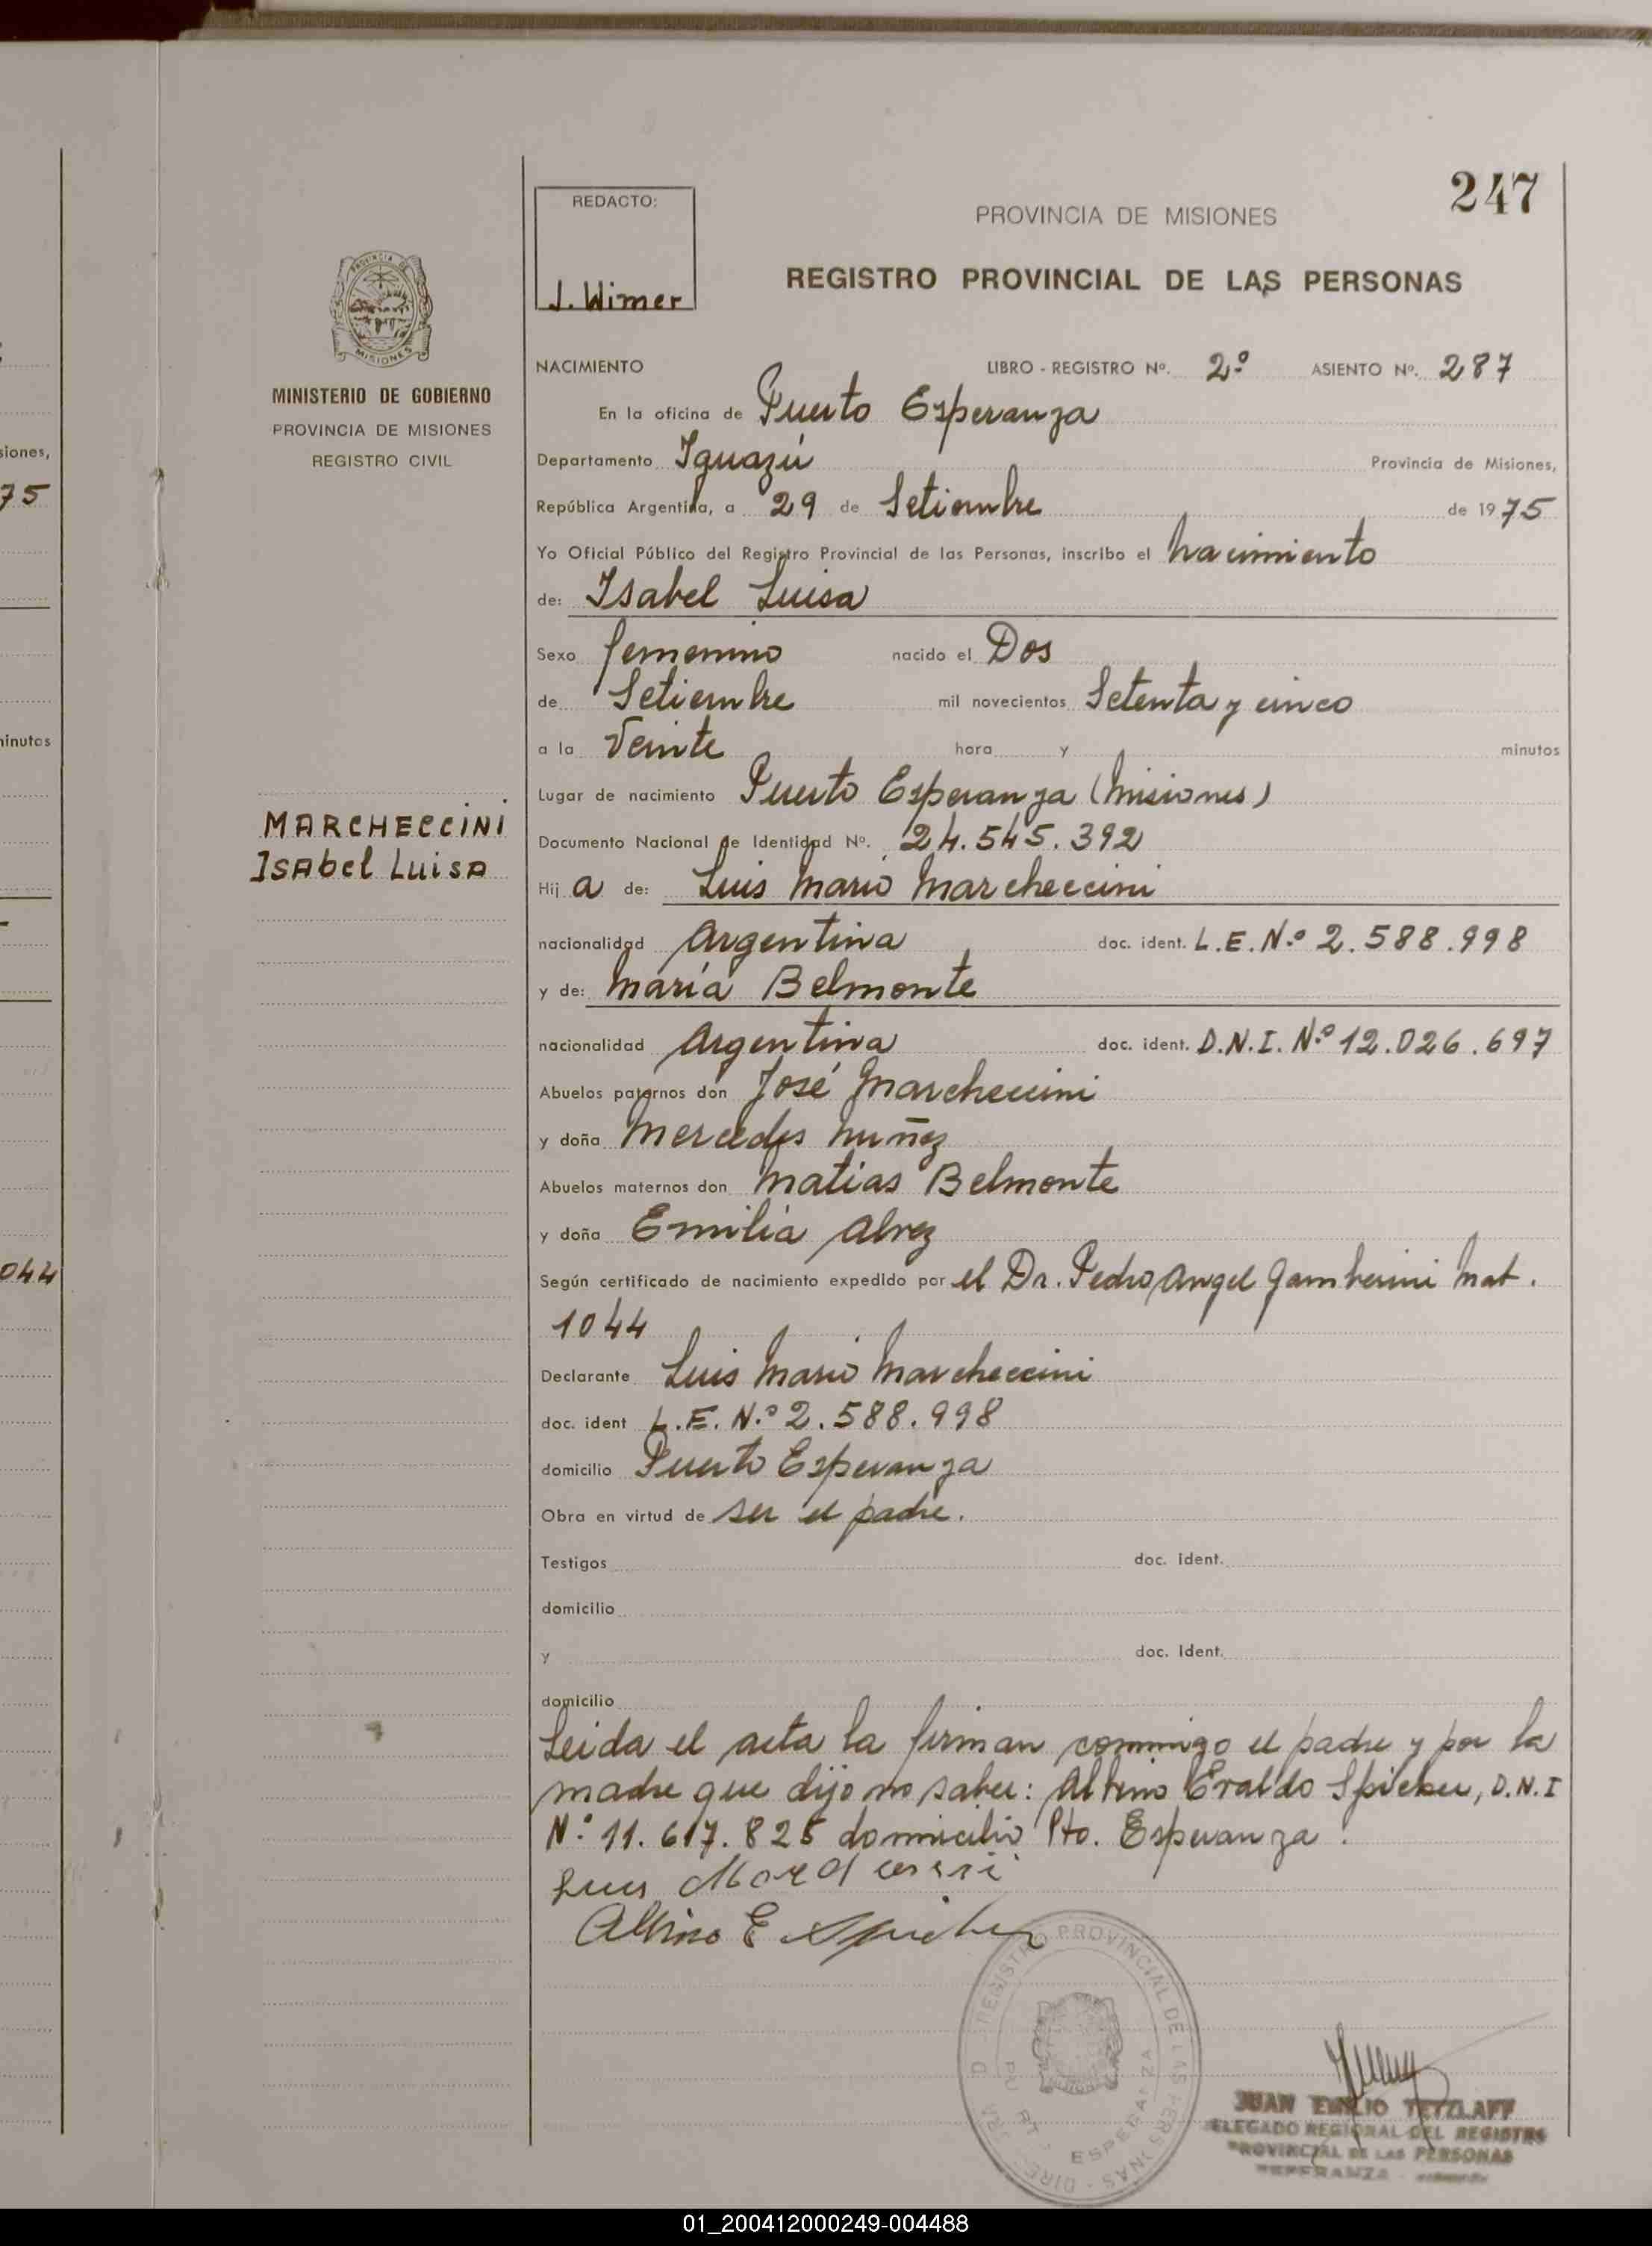 247
REDACTO:
J. Wimer
PROVINCIA DE MISIONES
REGISTRO PROVINCIAL DE LAS PERSONAS
PROVINCIA DE
MISIONES
MINISTERIO DE GOBIERNO
PROVINCIA DE MISIONES
REGISTRO CIVIL
siones,
75
inutos
044
MARCHECCINI
Isabel Luisa
NACIMIENTO LIBRO - REGISTRO Nº. 2º ASIENTO Nº. 287
En la oficina de Puerto Esperanza
Departamento Iguazú Provincia de Misiones,
República Argentina, a 29 de Setiembre de 1975
Yo Oficial Público del Registro Provincial de las Personas, inscribo el nacimiento
de: Isabel Luisa
Sexo femenino nacido el Dos
de Setiembre mil novecientos Setenta y cinco
a la Veinte hora y minutos
Lugar de nacimiento Puerto Esperanza (Misiones)
Documento Nacional de Identidad Nº. 24.545.392
Hij a de: Luis Mario Marcheccini
nacionalidad Argentina doc. ident. L.E.N.º 2.588.998
y de: María Belmonte
nacionalidad Argentina doc. ident. D.N.I. N.º 12.026.697
Abuelos paternos don José Marcheccini
y doña Mercedes Nuñez
Abuelos maternos don Matias Belmonte
y doña Emilia Alvez
Según certificado de nacimiento expedido por el Dr. Pedro Angel Gamberini Mat.
1044
Declarante Luis Mario Marcheccini
doc. ident L.E. N.º 2.588.998
domicilio Puerto Esperanza
Obra en virtud de ser el padre.
Testigos doc. ident.
domicilio
y doc. Ident.
domicilio
Leida el acta la firman conmigo el padre y por la
madre que dijo no saber: Albino Evaldo Spieker, D.N.I
N.º 11.617.825 domicilio Pto. Esperanza.
Luis
Albino E Spieker
REGISTRO PROVINCIAL DE LAS PERSONAS
ESPERANZA
JUAN EMILIO TETZLAFF
DELEGADO REGIONAL DEL REGISTRO
PROVINCIAL DE LAS PERSONAS
ESPERANZA
01_200412000249-004488